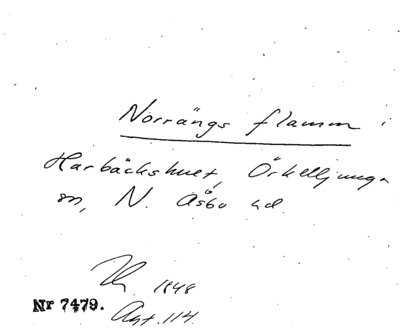 Norrängs flamm i
Harbäckshuet, Örkelljunga
sn, N. Åsbo hd.
1848
Nr 7479.
Ant. 114.